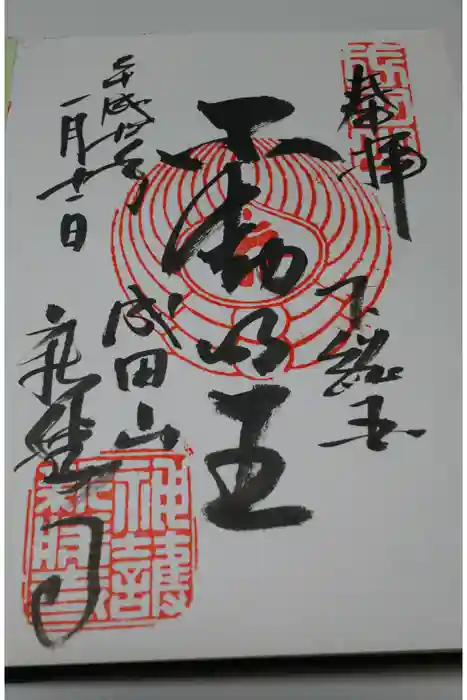 奉拝
下総国
不動明王
平成
一月十一日
成田山
新勝寺
神護新勝寺